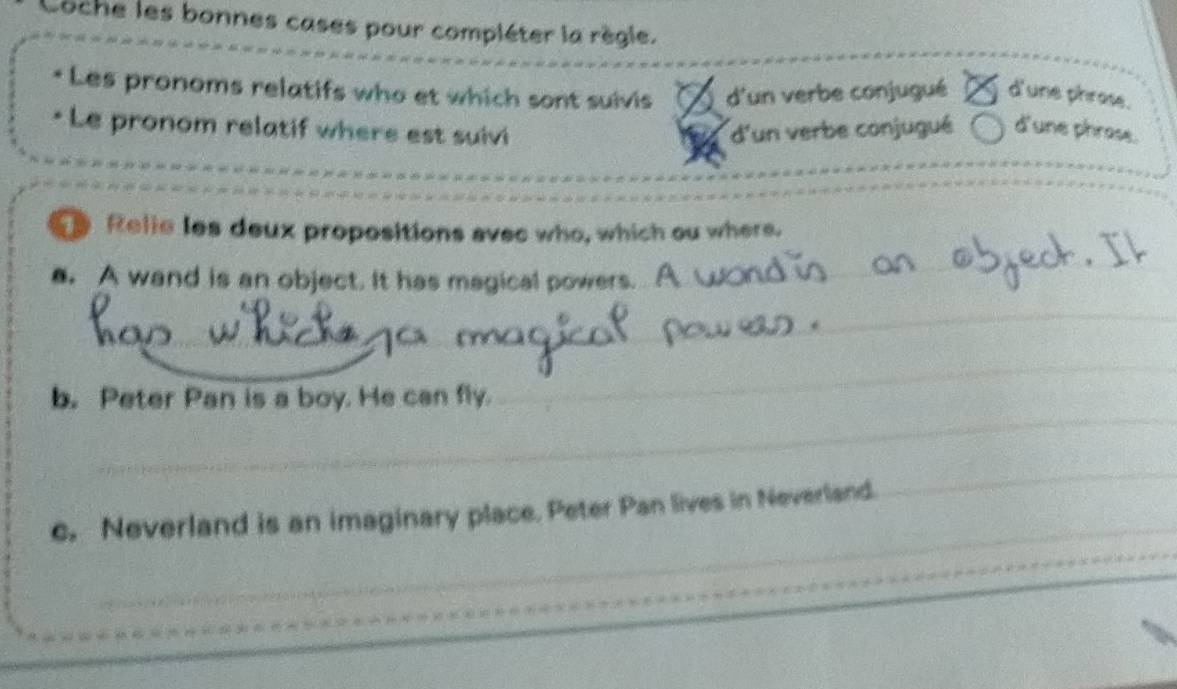 Coche les bonnes cases pour compléter la règle.
• Les pronoms relatifs who et which sont suivis d'un verbe conjugué d'une phrase.
• Le pronom relatif where est suivi d'un verbe conjugué d'une phrase.
1 Relie les deux propositions avec who, which ou where.
a. A wand is an object. It has magical powers. A wand is an object. It
has which a magical powers.
b. Peter Pan is a boy. He can fly.
c. Neverland is an imaginary place. Peter Pan lives in Neverland.